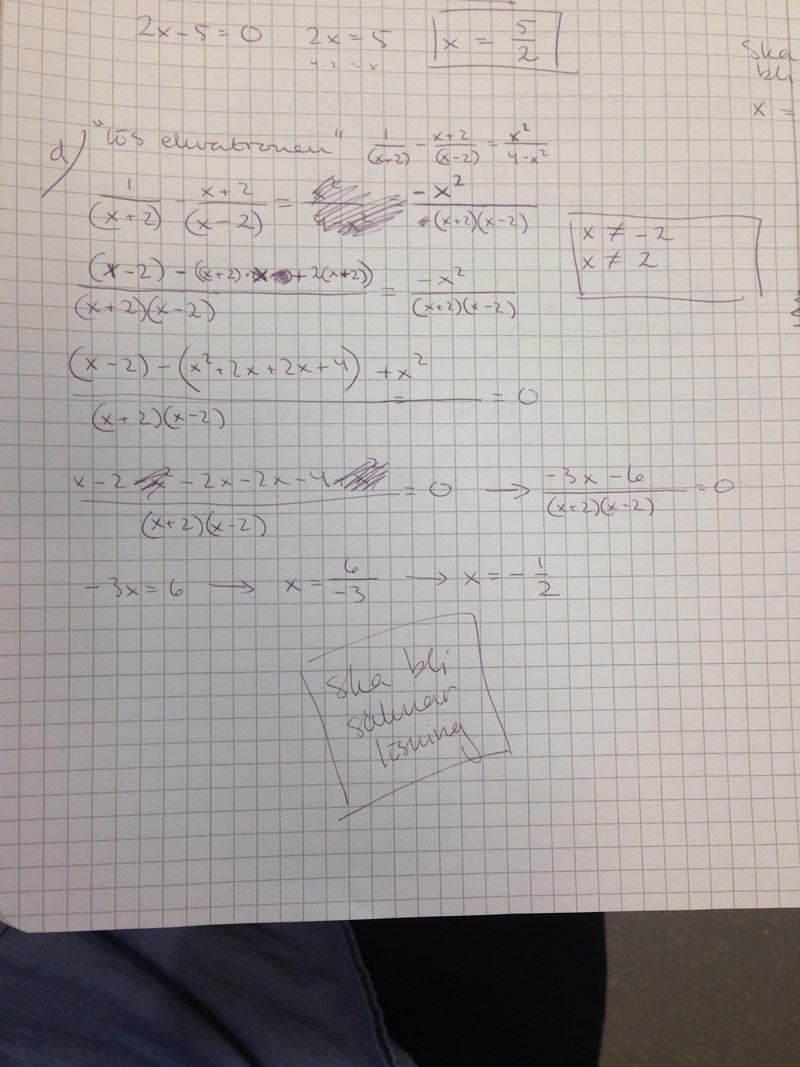 2x-5=0 2x=5 x = 5/2
Ska
bli
x =
d) "Lös ekvationen" 1/(x+2) - x+2/(x-2) = x²/4-x²
1/(x+2) - x+2/(x-2) = -x²/(x+2)(x-2)
x ≠ -2
x ≠ 2
(x-2) - ((x+2)·x+2(x+2))/(x+2)(x-2) = -x²/(x+2)(x-2)
(x-2)-(x²+2x+2x+4)+x²/(x+2)(x-2) = 0
x-2-2x-2x-4/(x+2)(x-2) = 0 → -3x-6/(x+2)(x-2) = 0
-3x=6 → x = 6/-3 → x = -1/2
Ska bli
saknar
lösning